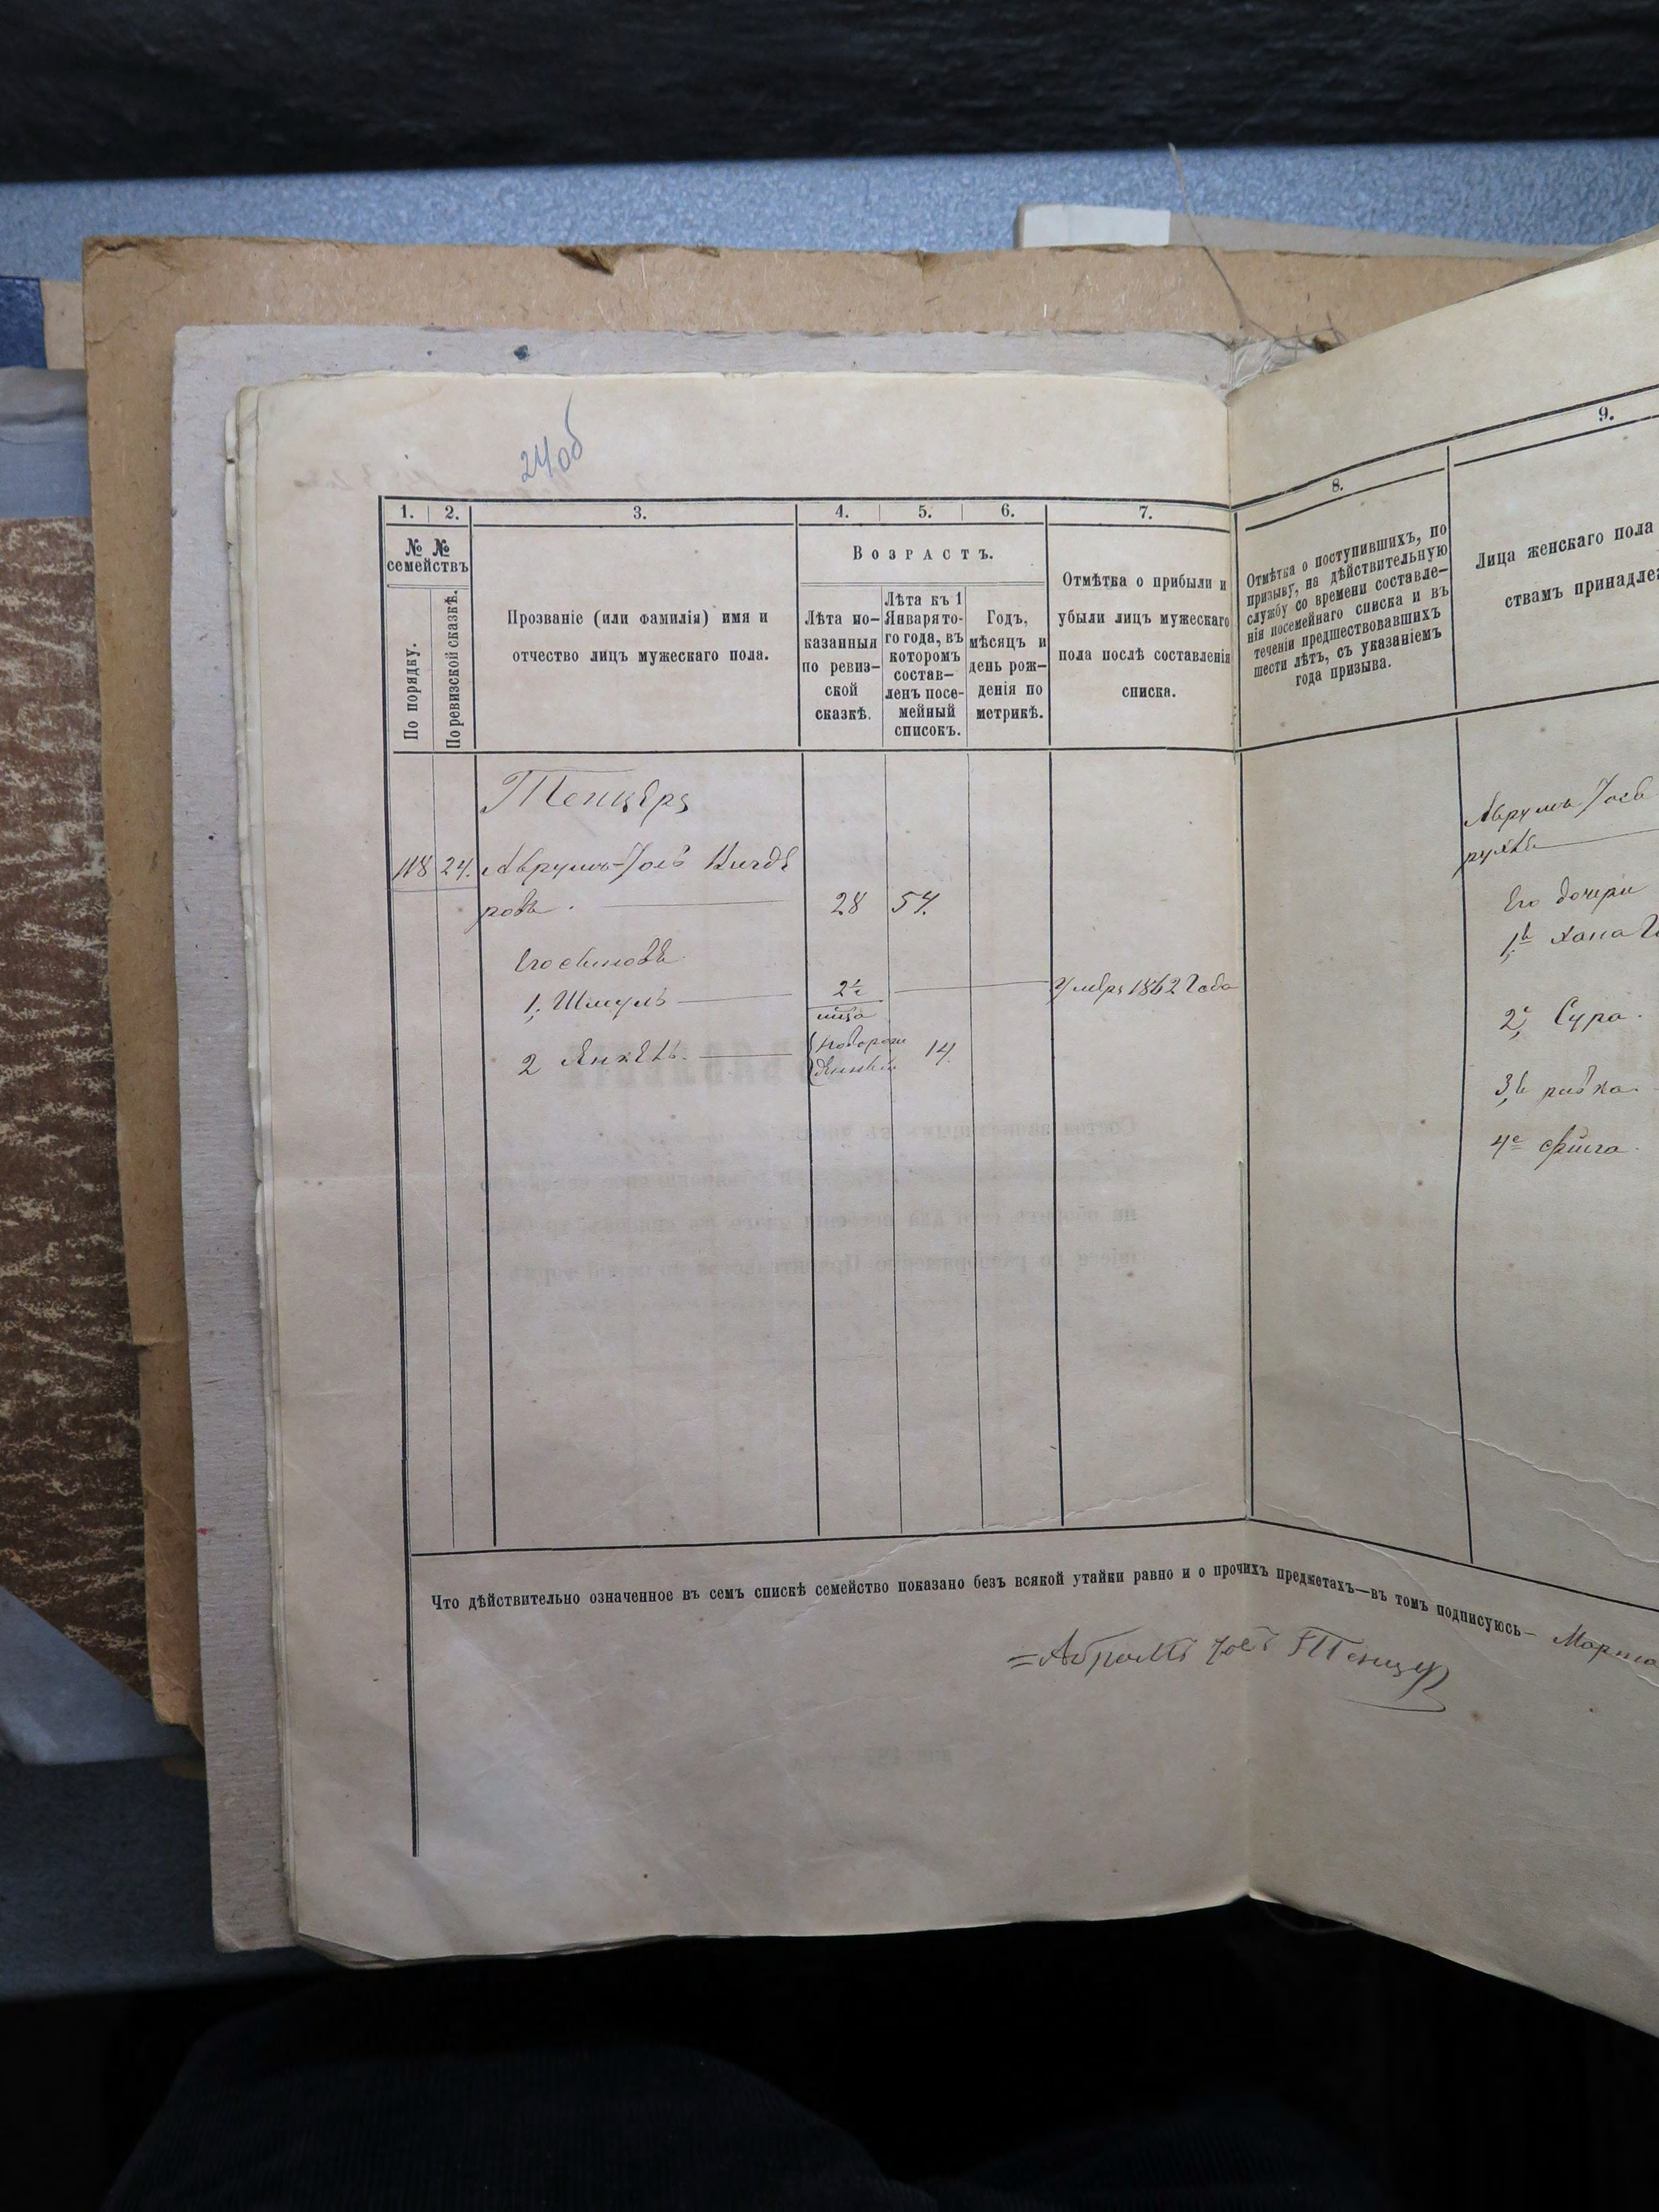 24об
1. 2. 3. 4. 5. 6. 7. 8. 9.
№ №
семействъ
По порядку.
По ревизской сказкѣ.
Прозваніе (или фамилія) имя и
отчество лицъ мужескаго пола.
Возрастъ.
Лѣта по-
казанныя
по ревиз-
ской
сказкѣ.
Лѣта къ 1
Января то-
го года, въ
которомъ
состав-
ленъ посе-
мейный
списокъ.
Годъ,
мѣсяцъ и
день рож-
денія по
метрикѣ.
Отмѣтка о прибыли и
убыли лицъ мужескаго
пола послѣ составленія
списка.
Отмѣтка о поступившихъ, по
призыву, на дѣйствительную
службу со времени составле-
нія посемейнаго списка и въ
теченіи предшествовавшихъ
шести лѣтъ, съ указаніемъ
года призыва.
Лица женскаго пола
ствамъ принадле
Тенцеръ
118 24. Аврумъ-Іосъ Вигдо
ровъ. 28 54.
Его сыновья
1, Шмуль 2½ Умеръ 1862 Года
2 Янкель. новорож
денный 14.
Аврумъ Іосв
Его дочери
1я Хана
2, Сура.
3, ривка.
4 фейга.
Что дѣйствительно означенное въ семъ спискѣ семейство показано безъ всякой утайки равно и о прочихъ предметахъ—въ томъ подписуюсь— Марта
Абрамъ Іосъ Тенцеръ